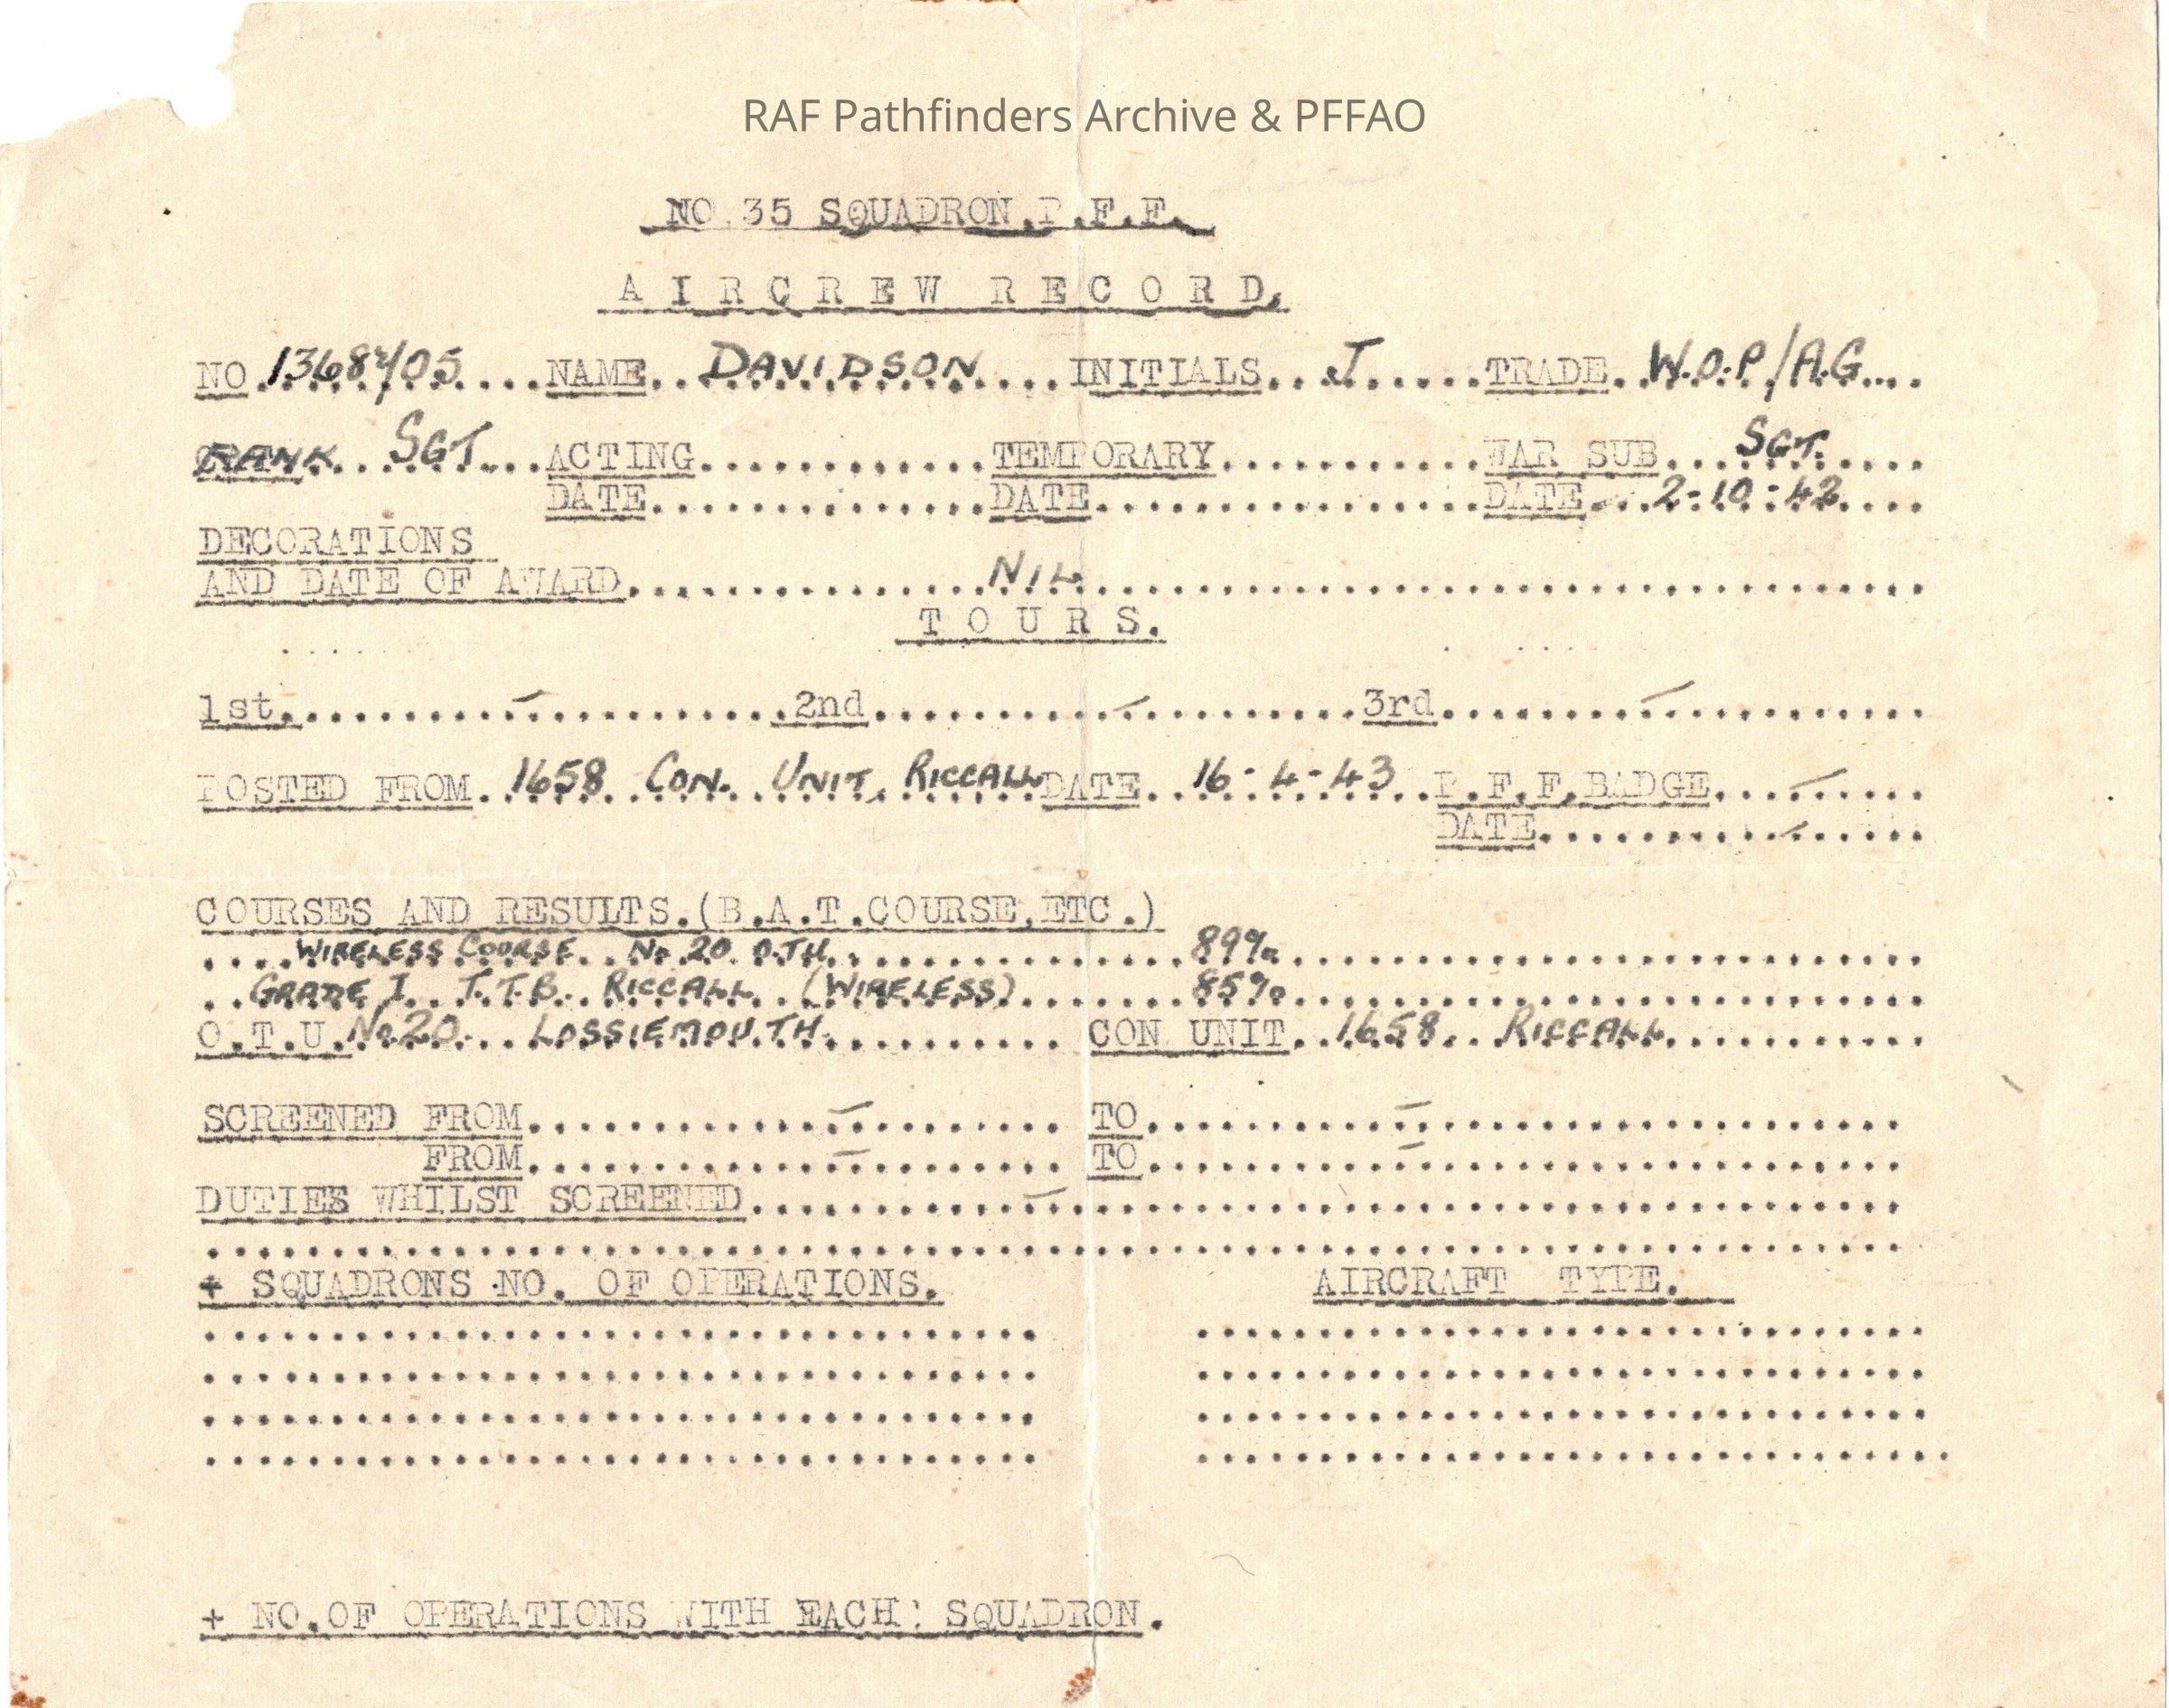 RAF Pathfinders Archive & PFFAO
NO 35 SQUADRON.P.F.F.
AIRCREW RECORD.
NO. NAME DAVIDSON INITIALS J TRADE W.O.P/A.G.
RANK SGT ACTING TEMPORARY WAR SUB SGT.
DATE DATE DATE 2-10-42
DECORATIONS
AND DATE OF AWARD NIL
TOURS.
1st. 2nd 3rd
POSTED FROM 1658 CON. UNIT, RICCALL DATE 16-4-43 P.F.F.BADGE
DATE
COURSES AND RESULTS.(B.A.T.COURSE,ETC.)
WIRELESS COURSE No 20 89%
GRADE I T.T.B. RICCALL (WIRELESS) 85%
O.T.U. No.20 LOSSIEMOUTH CON UNIT 1658 RICCALL
SCREENED FROM TO
FROM TO
DUTIES WHILST SCREENED
+ SQUADRONS NO. OF OPERATIONS. AIRCRAFT TYPE.
+ NO.OF OPERATIONS WITH EACH SQUADRON.